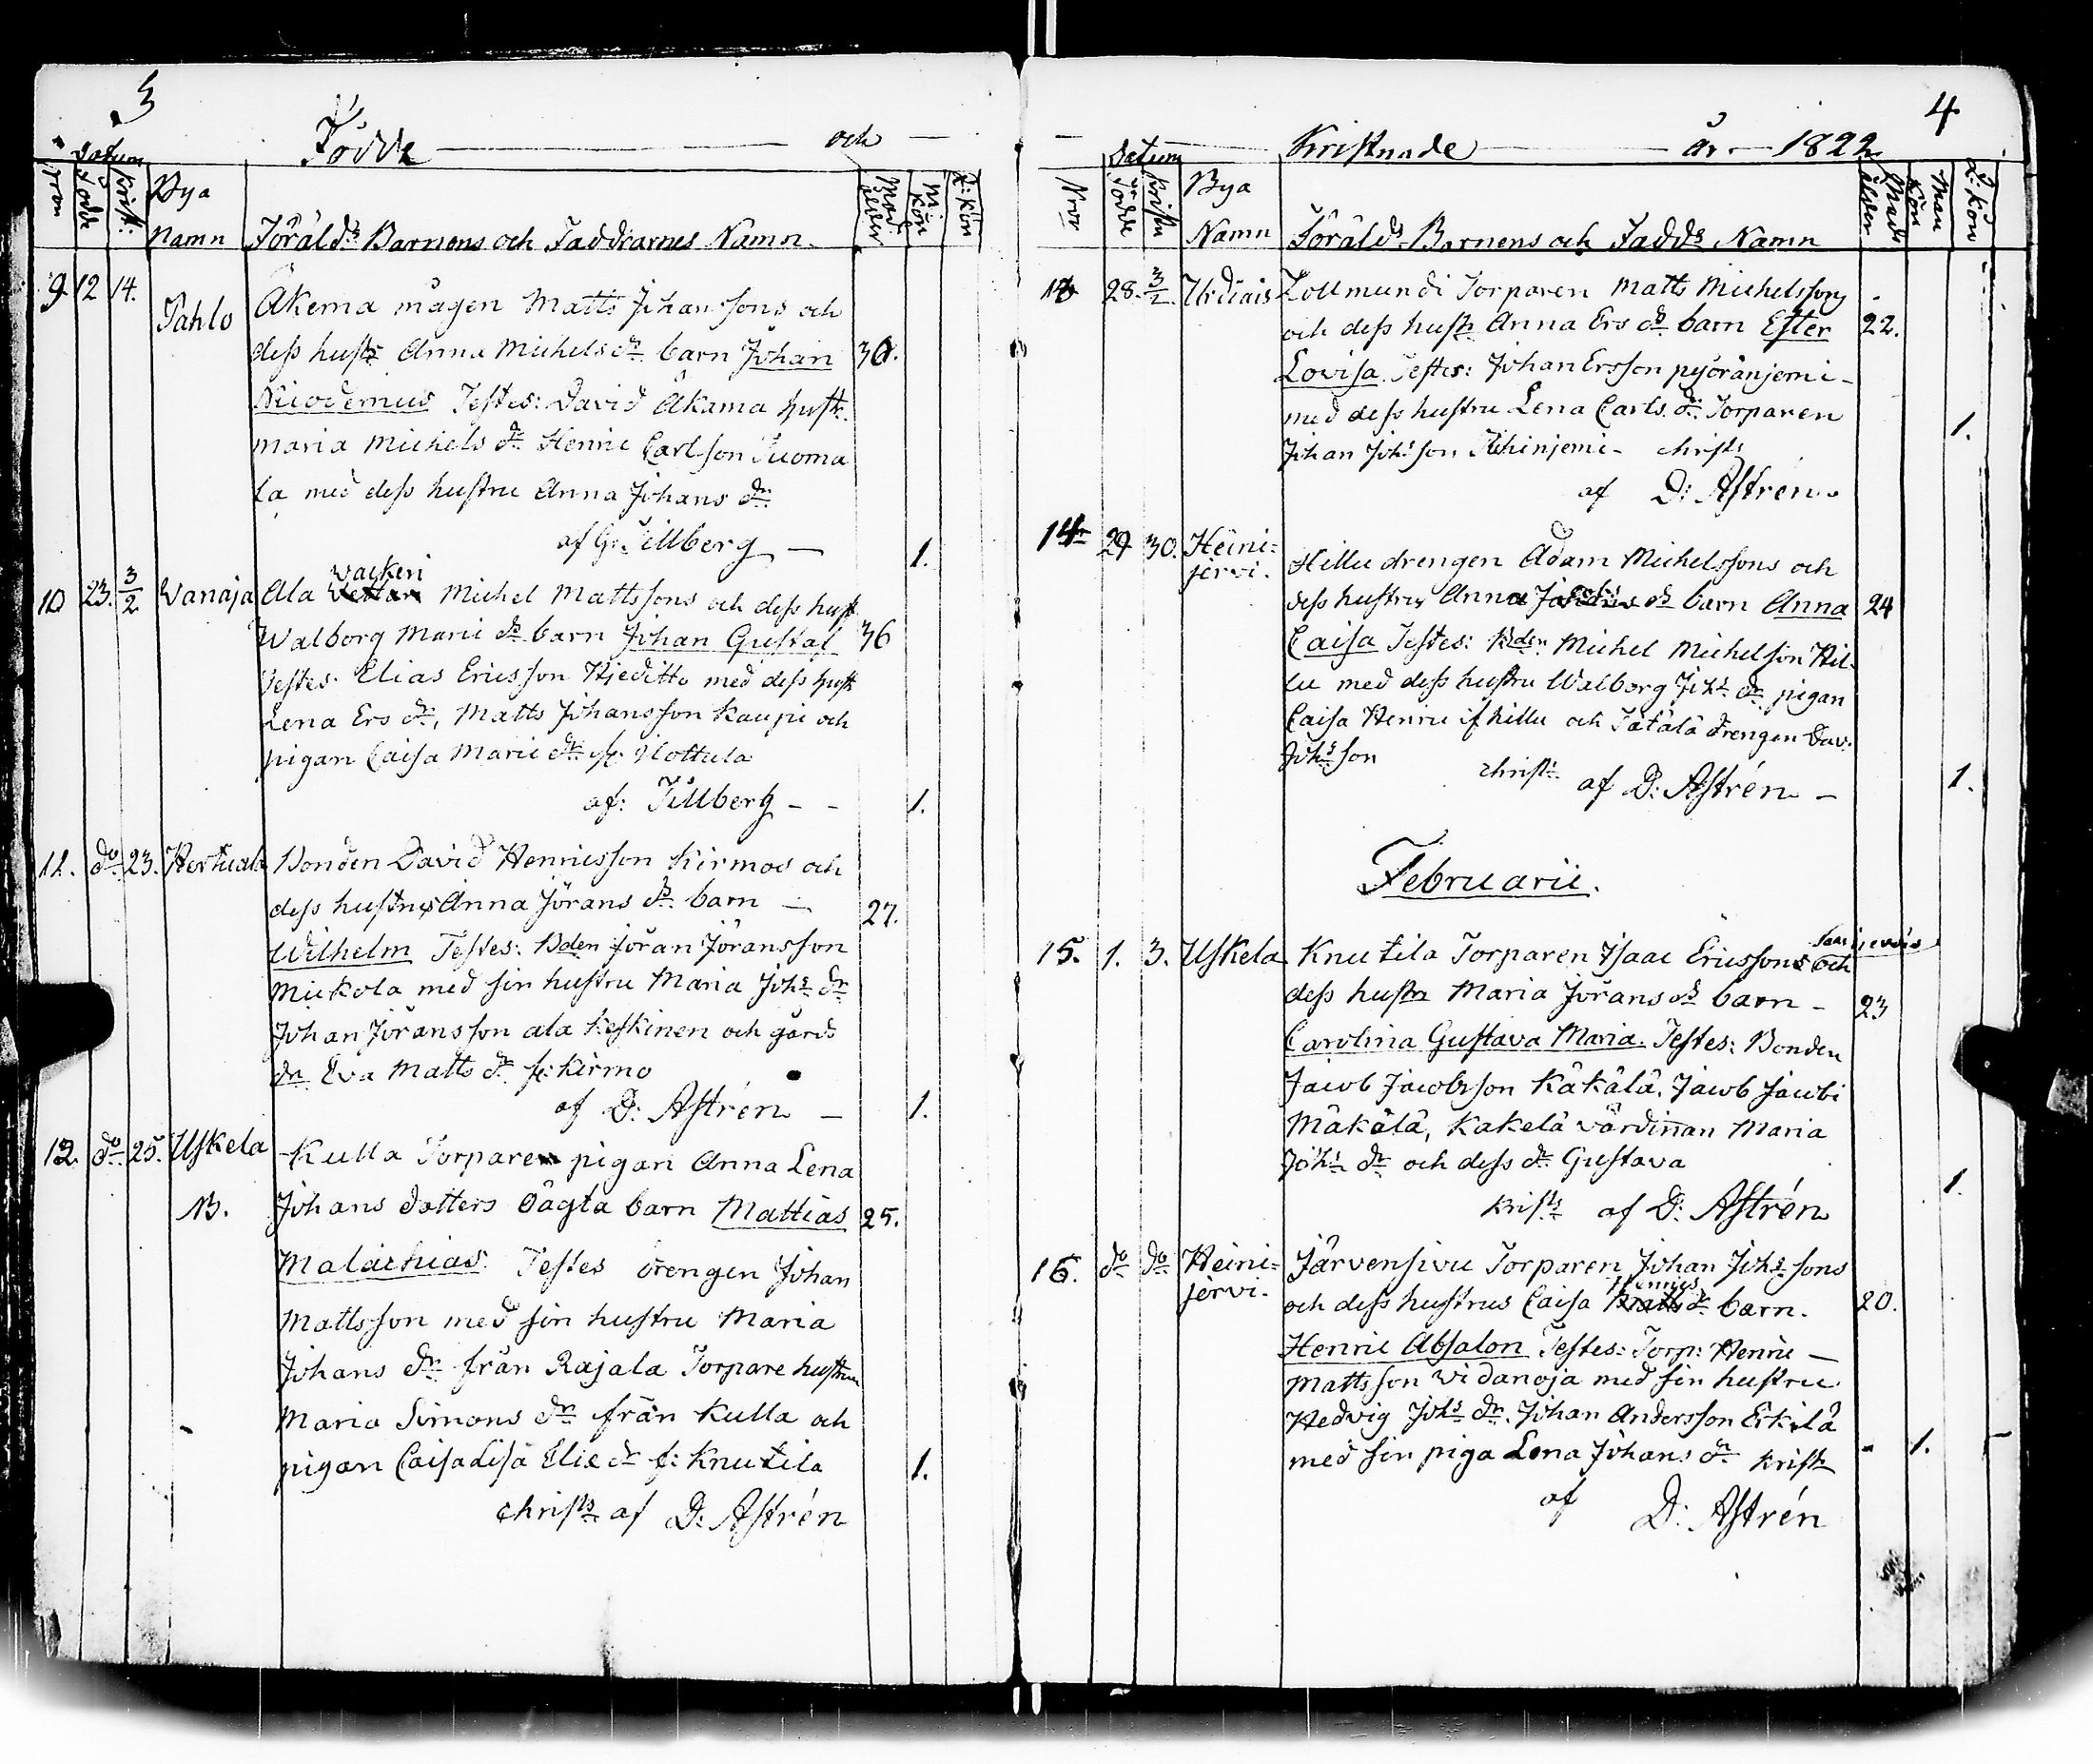 3
Födde och
Datum
Nron Födde Krist: Bya Namn Föräldrs Barnens och Faddrarnes Namn Mod ålder M: kön Q: kön
9. 12 14. Pahlo Åkerna mågen Matts Johanssons och
dess hustr Anna Michels dr barn Johan 30.
Nicodemus Testes: David Åkama hustr.
Maria Michels dr Henric Carlsson Tuoma
la med dess hustru Anna Johans dr
af G: Tillberg — 1.
wackeri
10 23. 3/2 Wanaja Ala Michel Mattssons och dess hust
Walborg Marie dr barn Johan Gustaf 36
Testes: Elias Ericsson Hjeditto med dess hust
Lena Ers dr, Matts Johansson Kaupi och
pigan Caisa Marie dr fr. Nottula
af: Tillberg - - 1.
11. do 23. Hertuala Bonden David Henricsson Kirmos och
dess hustrus Anna Jörans dr barn — 27.
Wilhelm Testes: Bden Jöran Jöransson
Mickola med sin hustru Maria Johs dr
Johan Jöransson ala Keskinen och gårds
dr Eva Matts dr f: Kirmo
af D: Astrén — 1.
12. do 25. Uskela Kulla Torpare pigan Anna Lena
B. Johans dotters oägta barn Mattias 25.
Malachias. Testes drengen Johan
Mattsson med sin hustru Maria
Johans dr från Rajala Torpare hustrun
Maria Simons dr från Kulla och
pigan Caisa Lisa Elie dr f: Knutila 1.
christs af D: Astrén
4
Kristnade år 1822
Datum
Nror Födde Kristn Bya Namn Föräldrs Barnens och Fadds Namn Mods ålder Man Kön Q: kön
13 28. 3/2. Urdiais Zollmundi Torparen Matts Michelssons
och dess hustr Anna Ers dr barn Ester 22.
Lovisa. Testes: Johan Ersson pyöränjemi-
med dess hustru Lena Carls dr Torparen 1.
Johan Johs son Hihinjemi - christs
af D: Astrén.
14 29 30. Heini= Hillu drengen Adam Michelssons och
jervi. dess hustrus Anna dr barn Anna 24
Caisa Testes: Bden Michel Michelson Hil-
lu med dess hustru Walborg Johs dr pigan
Caisa Henric if hillu och Tätälä drengen Dav:
Johs son 1.
christs af D: Astrén —
Februarii.
15. 1. 3. Uskela Knutila Torparen Isaac Ericssons och
dess hustr Maria Jörans dr barn - 23
Carolina Gustava Maria. Testes: Bonden
Jacob Jacobsson Käkälä, Jacob Jacobi
Mäkälä, Kakelä värdinnan Maria
Johs dr och dess dr Gustava 1.
Krists af D: Astrén
16. do do Heini= Järvensivu Torparen Johan Johs sons
jervi. och dess hustrus Caisa Henrics dr barn. 20.
Henric Absalon Testes: Torp: Henric —
Mattsson widanoja med sin hustru
Hedvig Johs dr. Johan Andersson Erkilä
med sin piga Lena Johans dr krist 1.
af D: Astrén